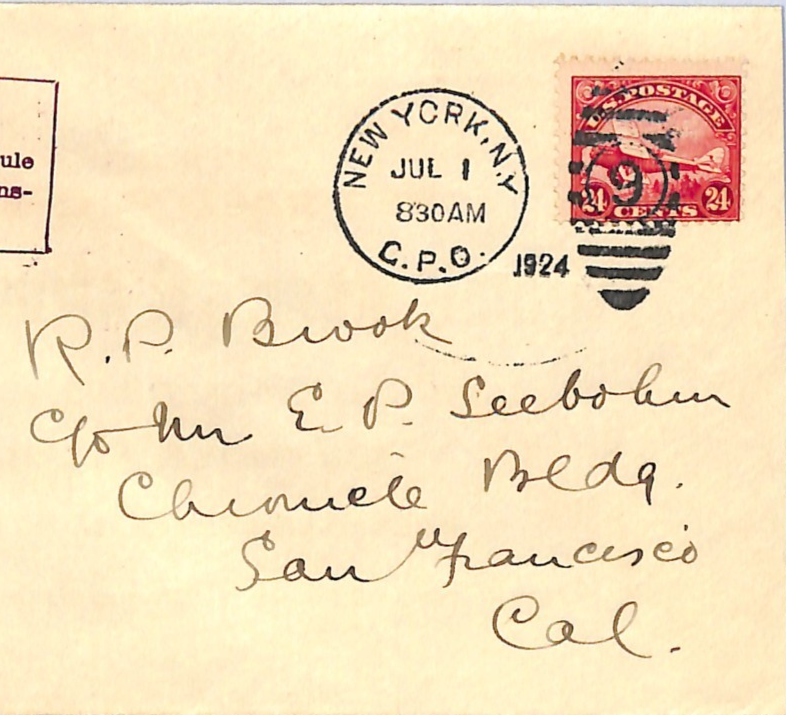 ule
ns-
NEW YORK, N.Y
JUL 1
830AM
G.P.O.
1924
U.S. POSTAGE
9
24 24
CENTS
R. P. Brook
c/o Mr E. P. Seebohm
Chronicle Bldg.
San Francisco
Cal.